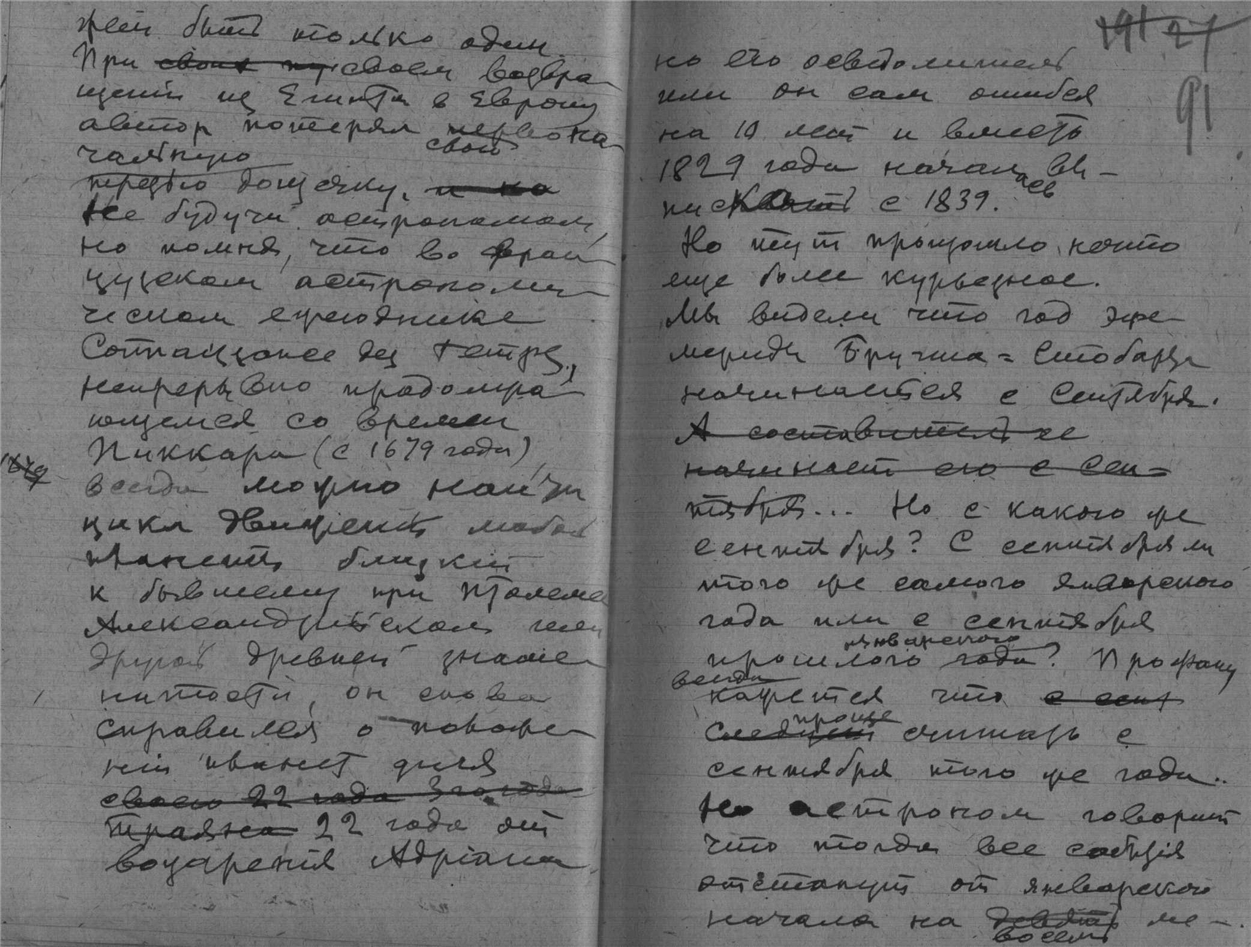 жет быть только один.
При ~~своих пу~~ своем возвра
щенiи из Египта в Европу
автор потерял первона
чальную свою
третью дощечку, ~~и но~~
Не будучи астрономом,
но помня, что во фран
цузском астрономи
ческом ежегоднике
Connaissance des temps,
непрерывно продолжа
ющемся со времен
Пиккара (с 1679 года)
~~1679~~
всегда можно найти
цикл движенiя любой
планеты близкiй
к бывшему при Птолемее
Александрiйском или
другой древней знаме
нитости, он снова
справился о положе
нiи планет для
~~своего 22 года 3го года~~
~~Траяна~~ 22 года от
воцаренiя Адрiана
~~191~~ ~~27~~
91
но его осведомитель
или он сам ошибся
на 10 лет и вместо
1829 года начал вы-
писывать с 1839.
Но тут произошло нечто
еще более курьезное.
Мы видели что год эфе
мерид Бругша=Стобарта
начинается с Сентября.
~~А составитель ее~~
~~начинает его с Сен=~~
~~тября~~... Но с какого же
сентября? С сентября ли
того же самого январского
года или с сентября
январского
прошлого года? Профану
всегда
кажется что ~~с сент~~
проще
~~следует~~ считать с
сентября того же года..
Но астроном говорит
что тогда все событiя
отстанут от январского
начала на ~~девять~~ ме-
восемь